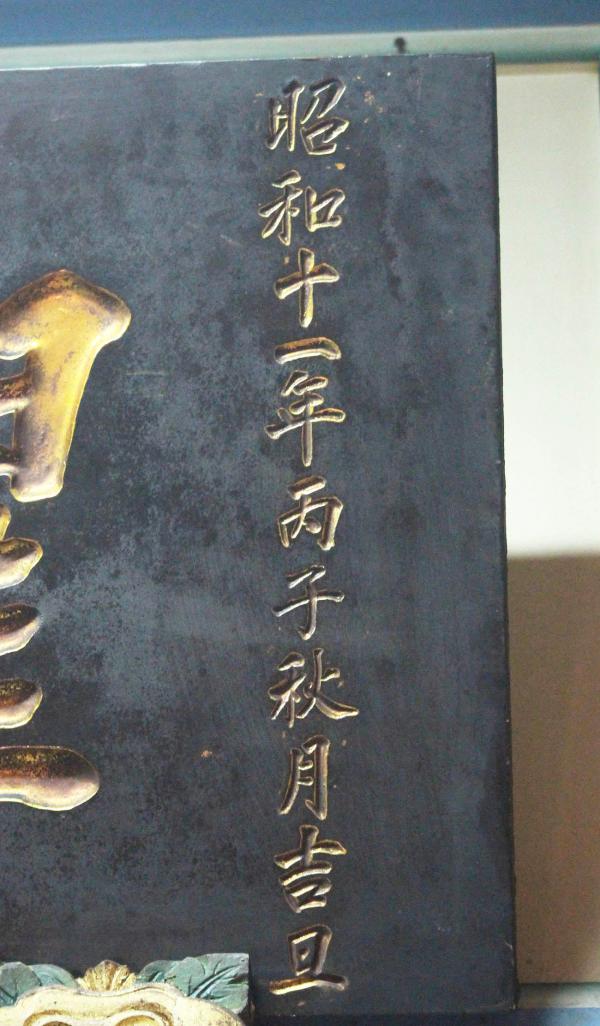 昭和十一年丙子秋月吉旦